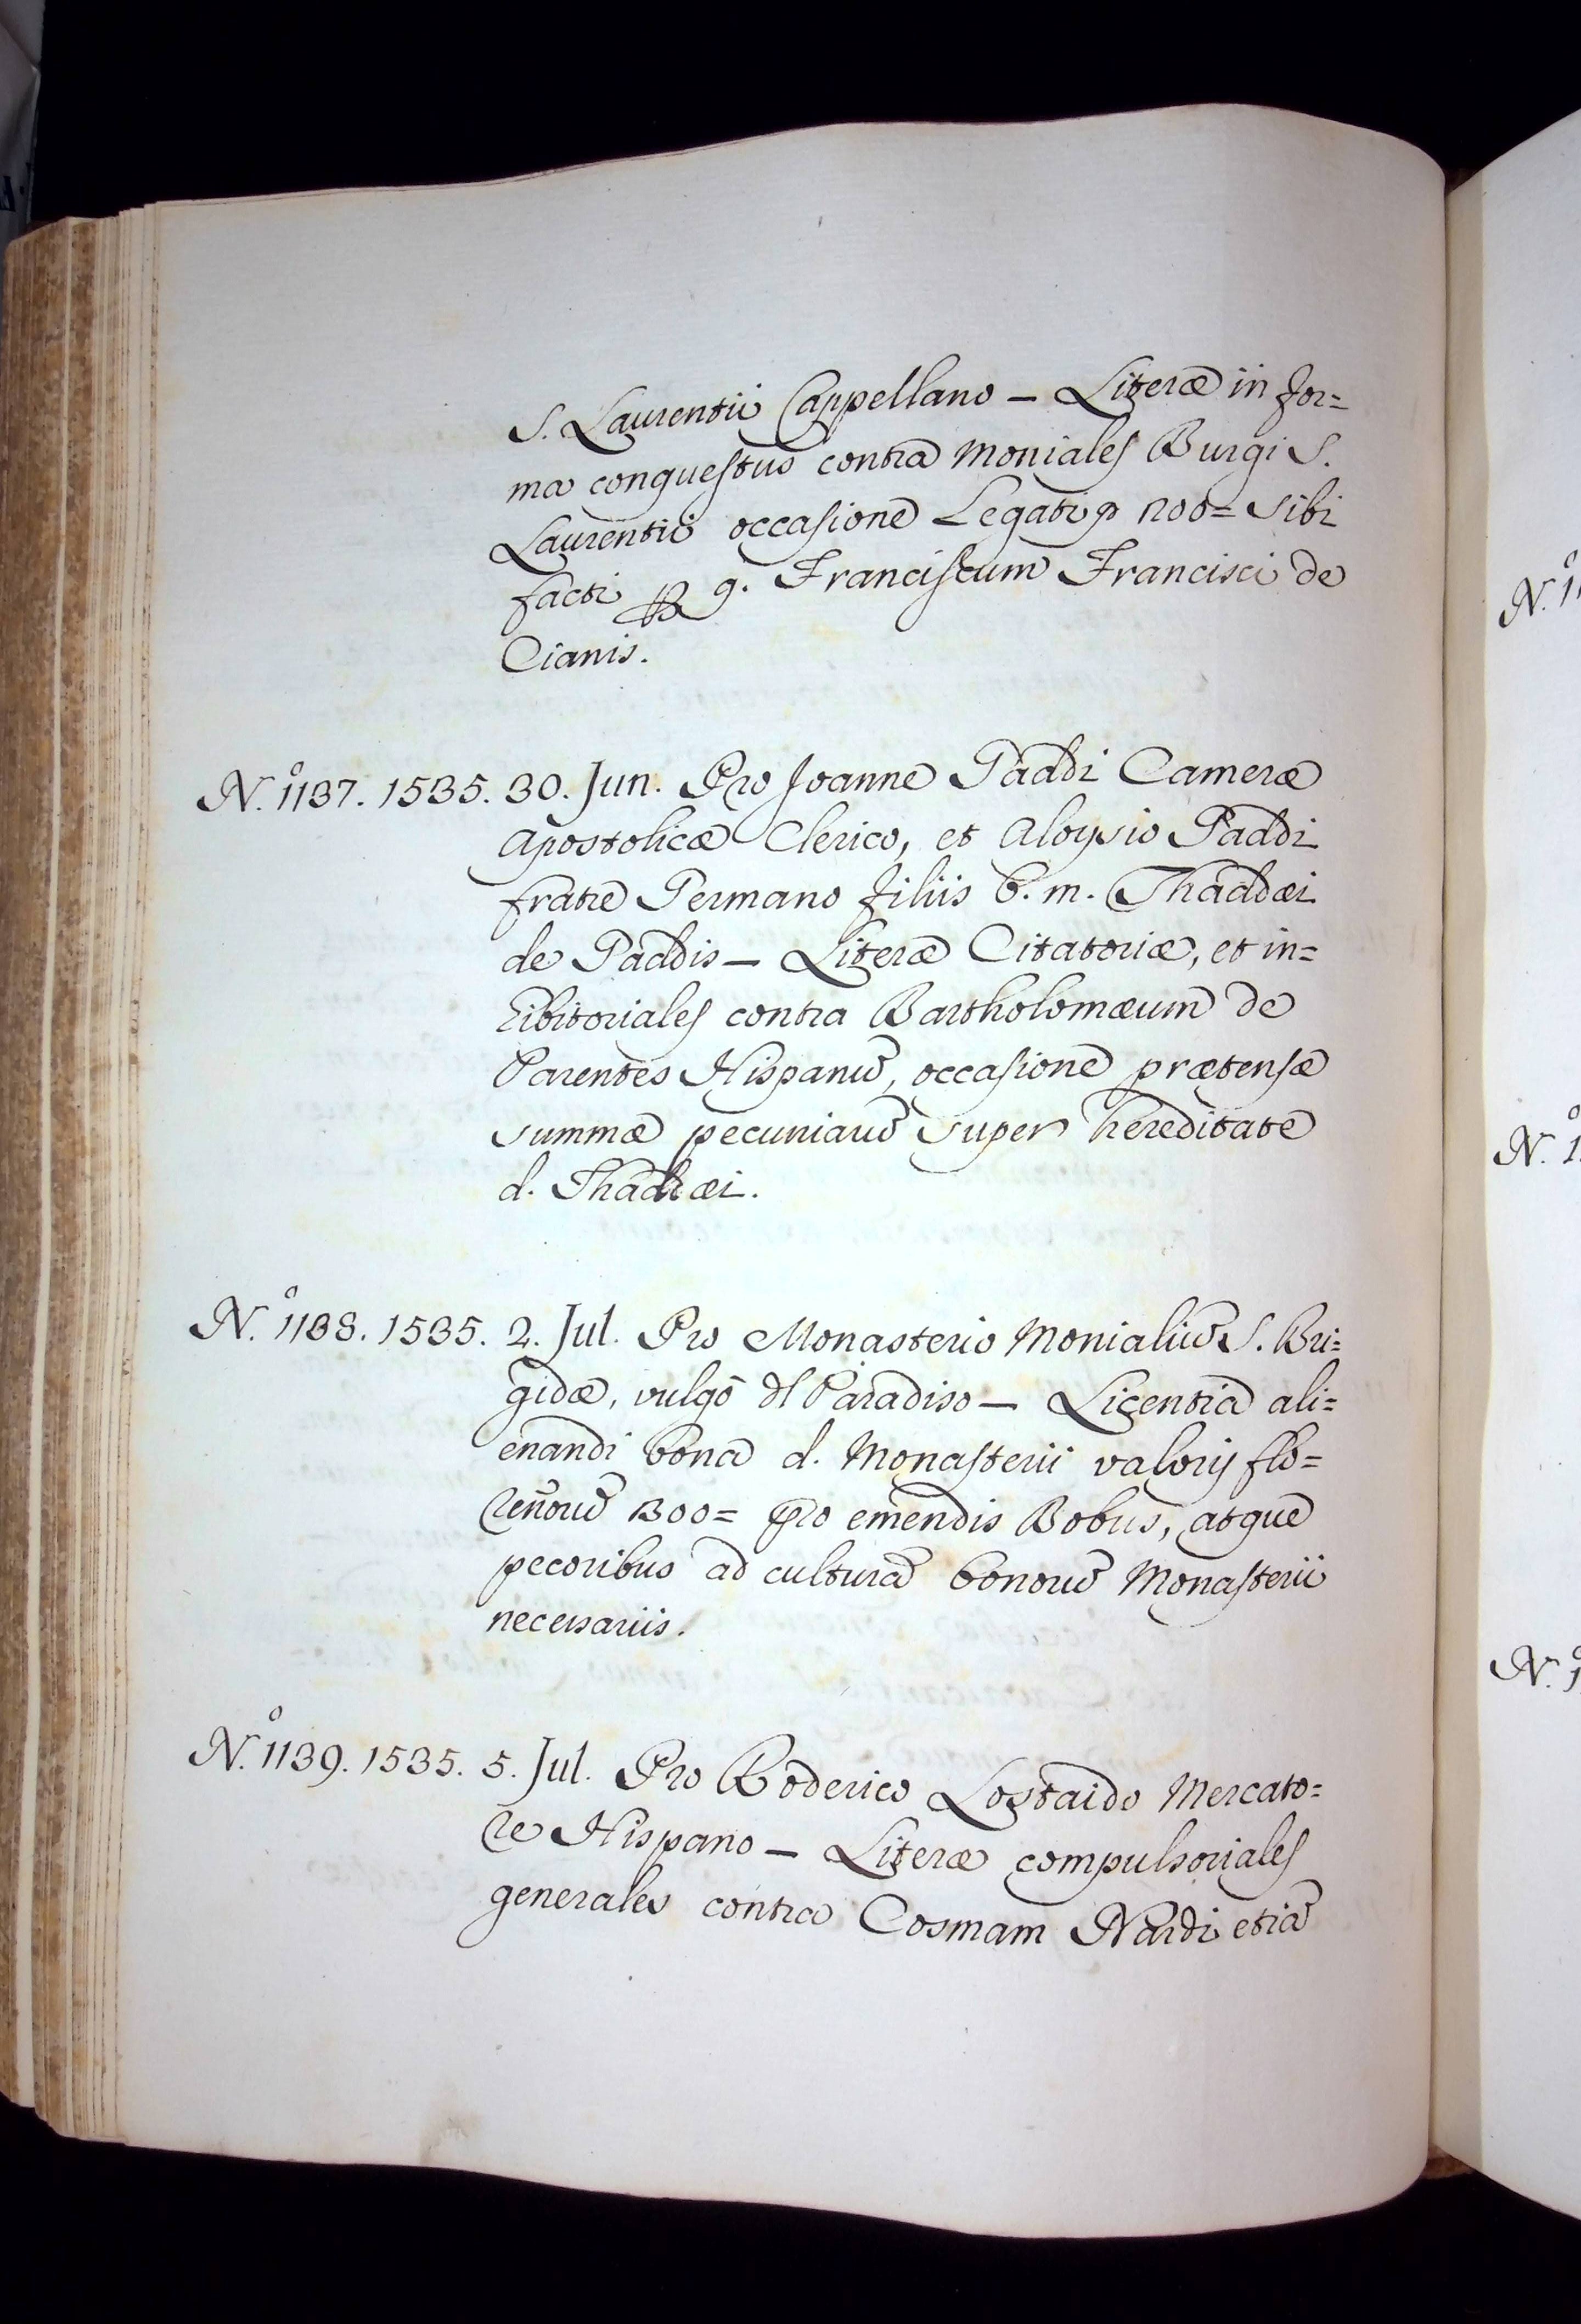 S. Laurentii Cappellano — Literæ in for=
ma conquestus contra Moniales Burgi S.
Laurentii occasione Legati 200= sibi
facti q. Franciscum Francisci de
Cianis.
N.º 1137. 1535. 30. Jun. Pro Joanne Gaddi Cameræ
Apostolicæ Clerico, et Aloysio Gaddi
fratre Germano filiis b. m. Thaddæi
de Gaddis — Literæ Citatoriæ, et in=
hibitoriales contra Bartholomæum de
Parentes Hispanū, occasione prætensæ
summæ pecuniarū super hereditate
d. Thaddæi.
N.º 1138. 1535. 2. Jul. Pro Monasterio Monialiū S. Bri=
gidæ, vulgò dl Paradiso — Licentia ali=
enandi bona d. Monasterii valoris flo=
renorū 1300= pro emendis Bobus, atque
pecoribus ad culturā bonorū Monasterii
necessariis.
N.º 1139. 1535. 5. Jul. Pro Roderico Lostaido Mercato=
re Hispano — Literæ compulsoriales
generales contra Cosmam Nardi etiā
N.º 1
N.º 1
N.º 1